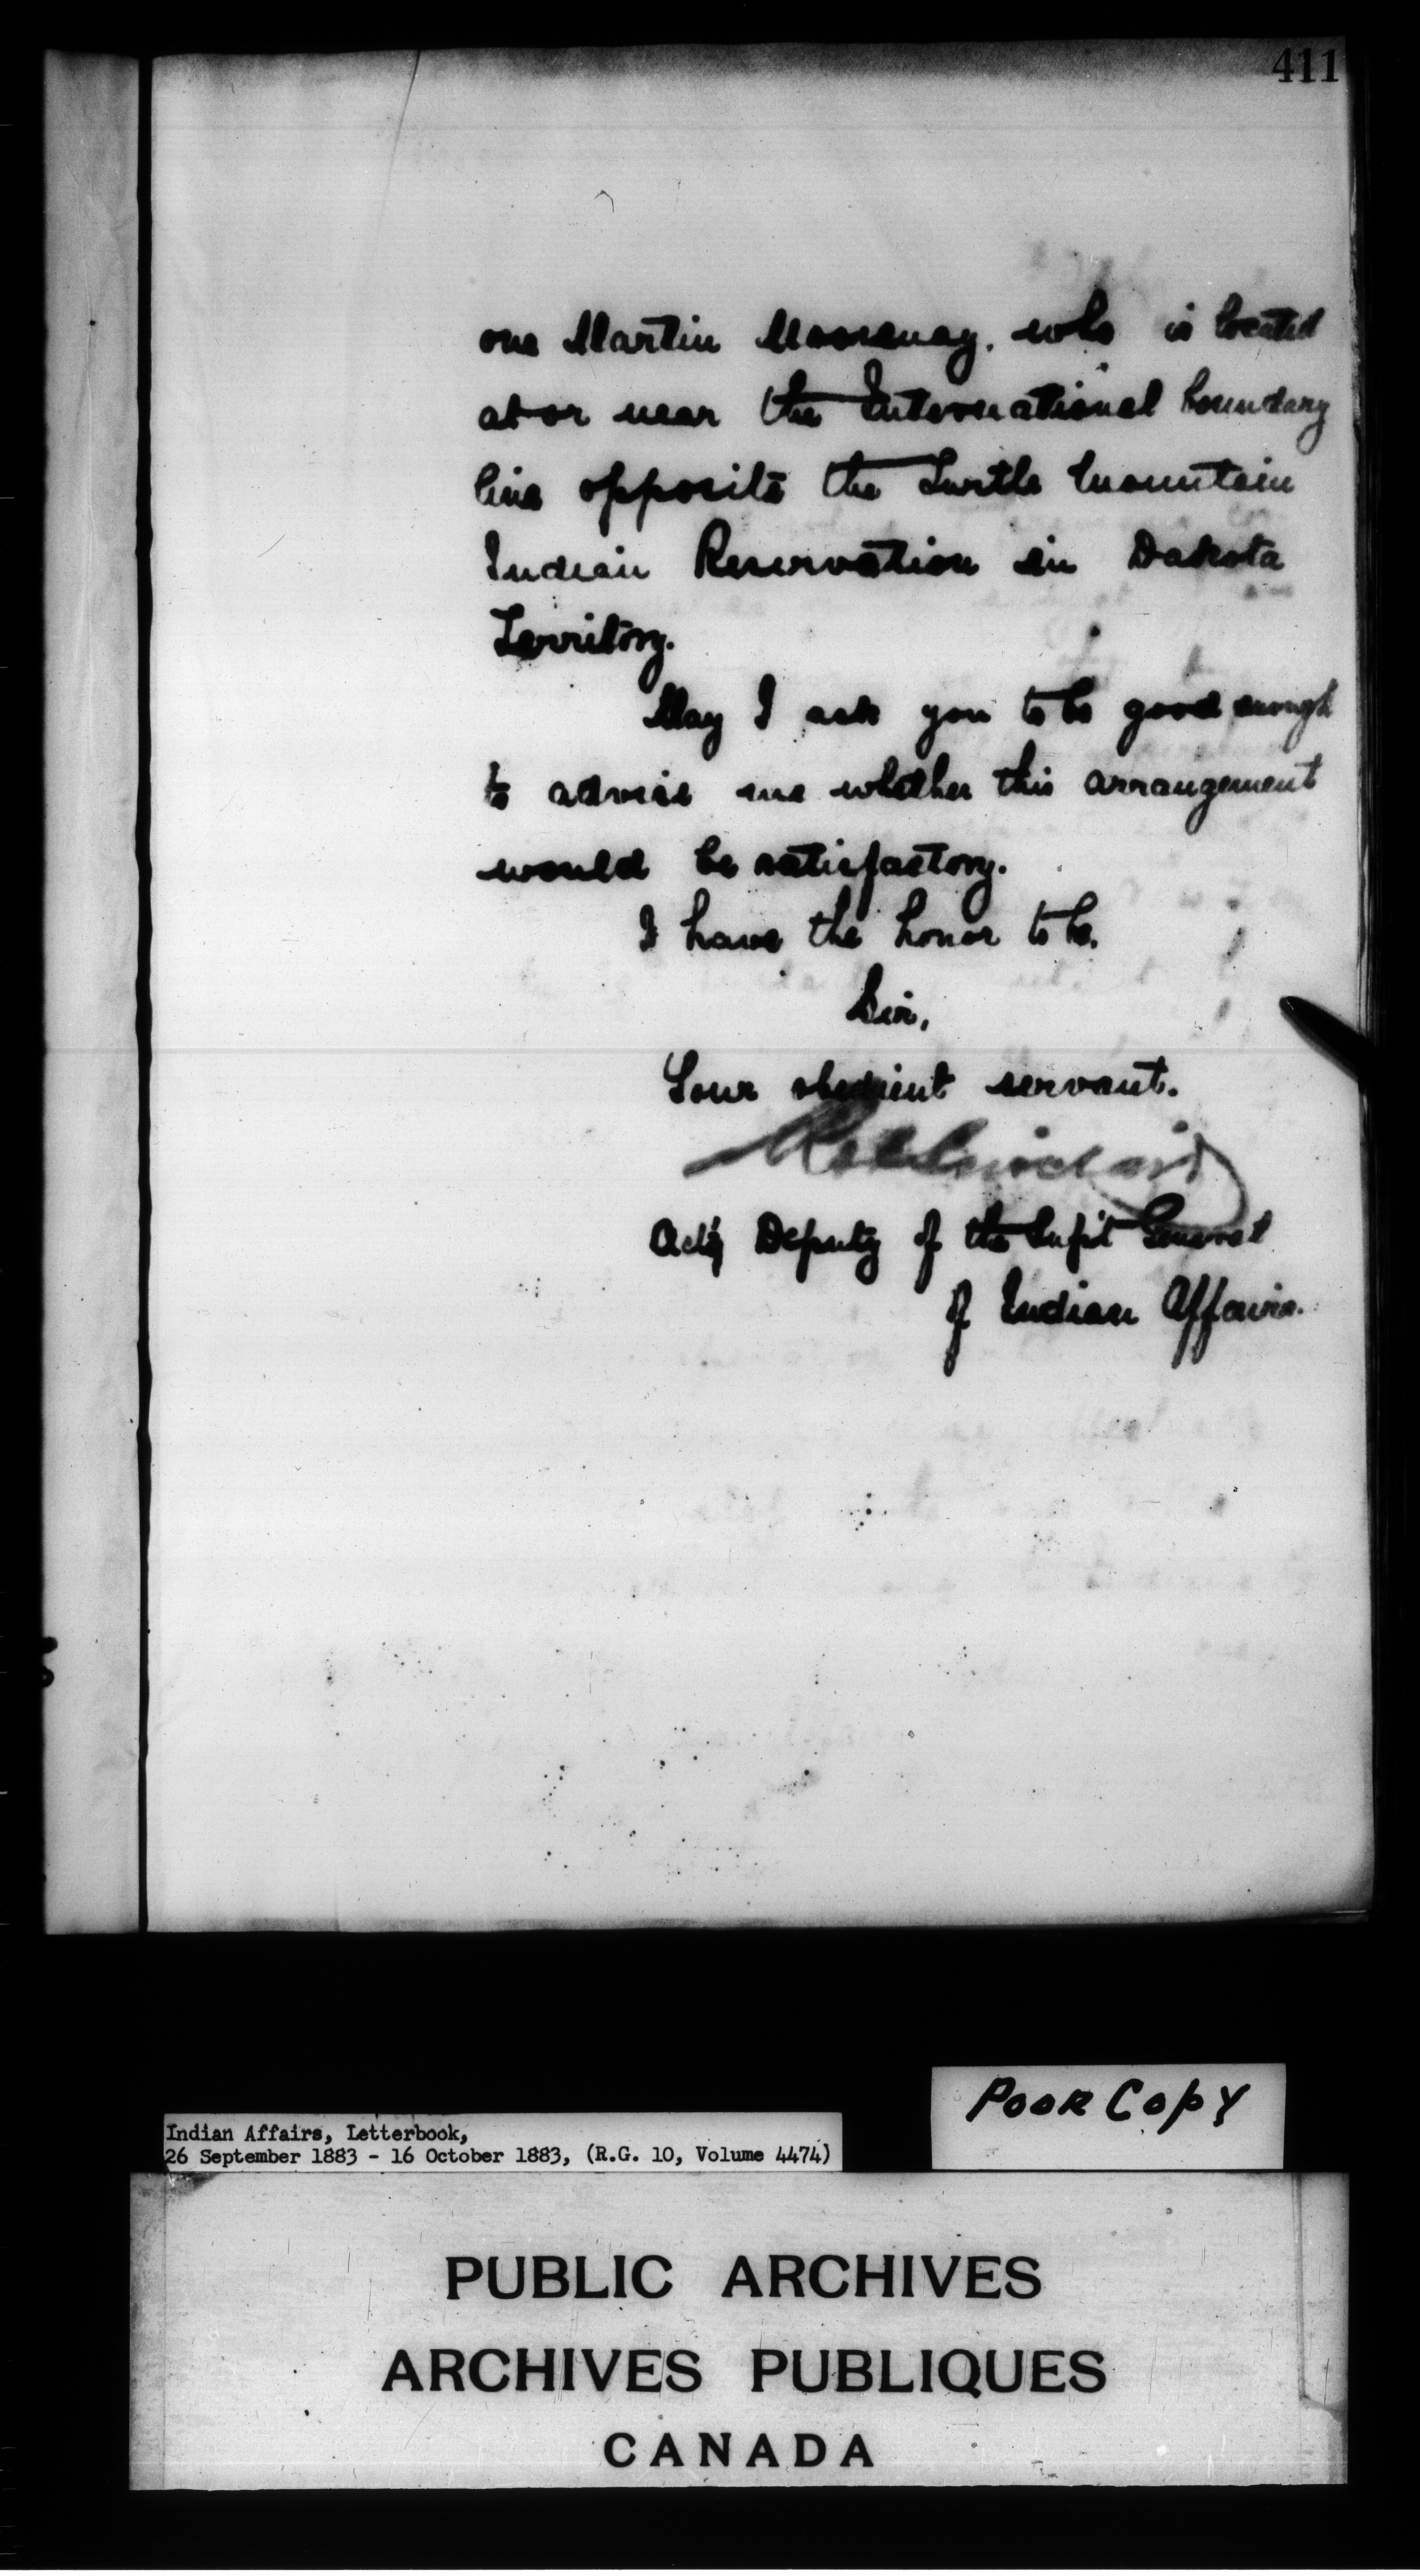 411
one Martin who is located
at or near the International boundary
line opposite the Turtle Mountain
Indian Reservation in Dakota
Territory.
May I ask you to be good enough
to advise me whether this arrangement
would be satisfactory.
I have the honor to be,
Sir,
Your obedient servant.
Rob Sinclair
Act'g Deputy of the Supt General
of Indian Affairs.
POOR COPY
Indian Affairs, Letterbook,
26 September 1883 - 16 October 1883, (R.G. 10, Volume 4474)
PUBLIC ARCHIVES
ARCHIVES PUBLIQUES
CANADA